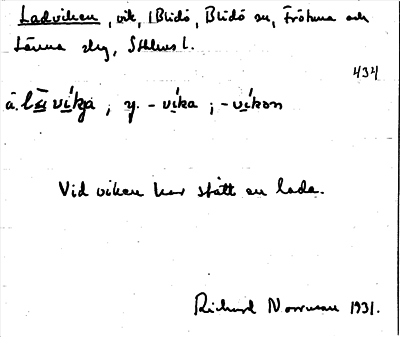 Ladviken, vik, i Blidö, Blidö sn, Frötuna och
Länna slg, Sthlms l.
434
ä. lāvíka, y. -víka; -víkon
Vid viken har stått en lada.
Richard Norrman 1931.